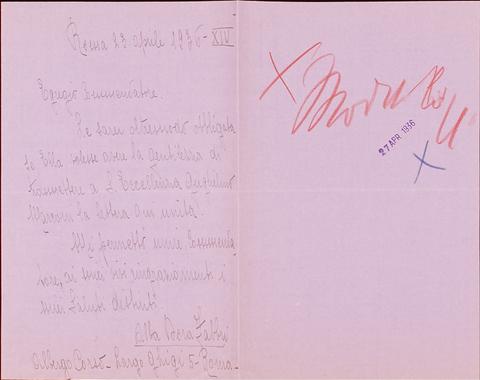 Roma 23 aprile 1936-XIV
Egregio Commendatore.
Le sarei oltremodo obbligata
se Ella volesse avere la gentilezza di
trasmettere a S. Eccellenza Guglielmo
Marconi la lettera qui unita.
Mi permetta unire Commenda
tore, ai miei ringraziamenti i
miei saluti distinti.
Alba Fabbri
Albergo Corso - Largo Ghigi 5 - Roma -
27 APR. 1936